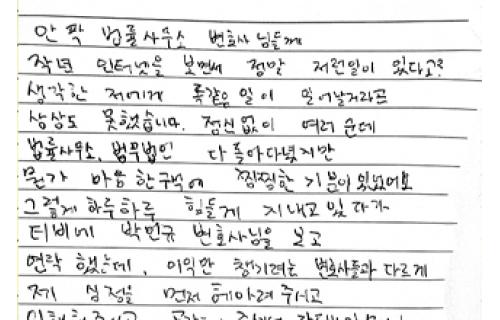 안팍 법률사무소 변호사님들께
작년 인터넷을 보면서 정말 저런일이 있다고?
생각한 저에게 똑같은 일이 일어날거라곤
상상도 못했습니다. 정신없이 여러 군데
법률사무소, 법무법인 다 돌아다녔지만
뭔가 마음 한구석에 찜찜한 기분이 있었어요
그렇게 하루하루 힘들게 지내고 있다가
티비에 박민규 변호사님을 보고
연락 했는데, 이익만 챙기려는 변호사들과 다르게
제 심정을 먼저 헤아려 주시고